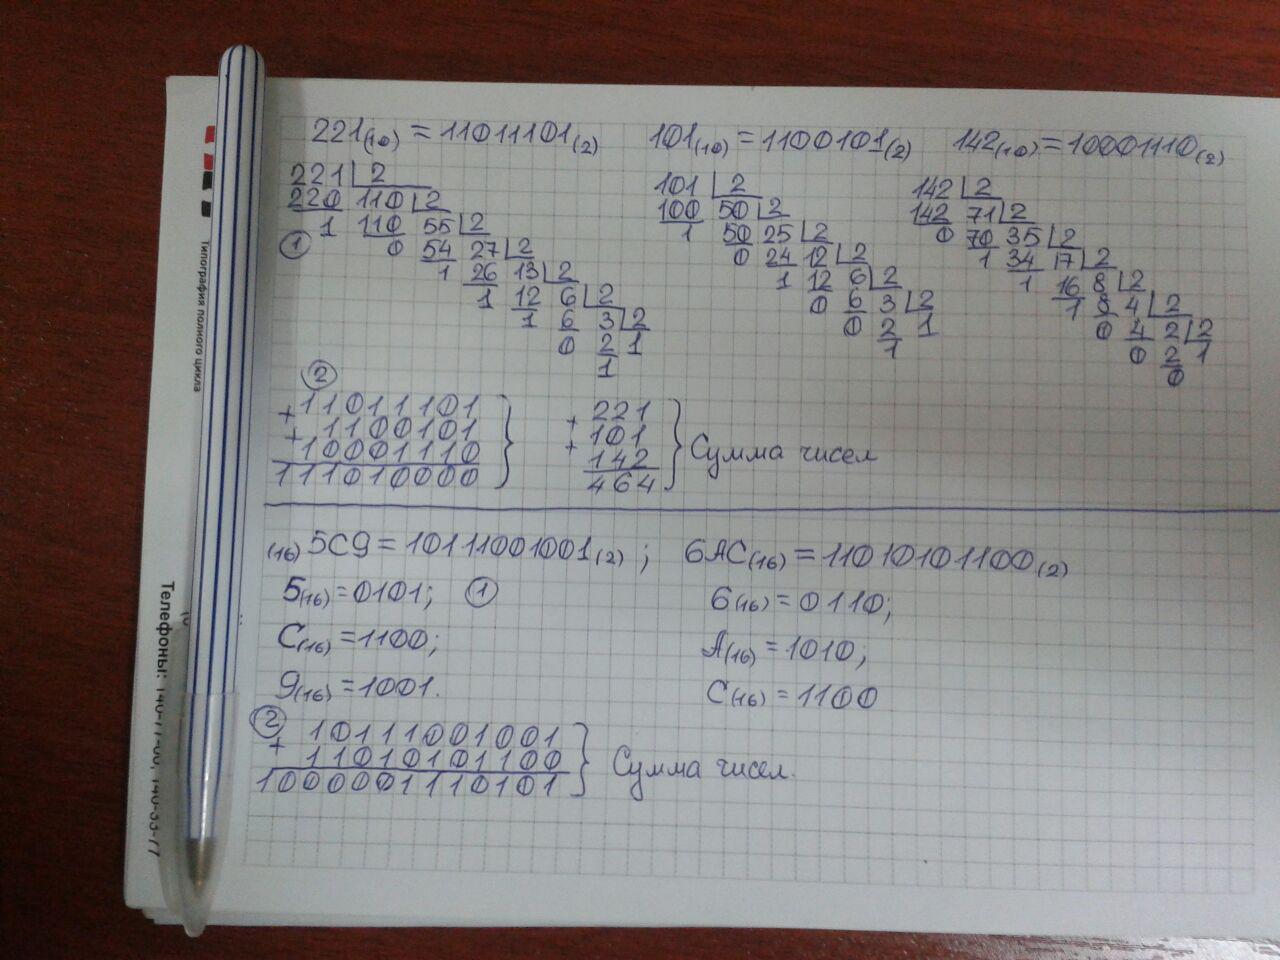 221(10) = 11011101(2)   101(10) = 1100101(2)   142(10) = 10001110(2)
221 | 2   101 | 2   142 | 2
220 110 | 2   100 50 | 2   142 71 | 2
1 110 55 | 2   1 50 25 | 2   0 70 35 | 2
① 0 54 27 | 2   0 24 12 | 2   1 34 17 | 2
1 26 13 | 2   1 12 6 | 2   1 16 8 | 2
1 12 6 | 2   0 6 3 | 2   1 8 4 | 2
1 6 3 | 2   0 2 1   0 4 2 | 2
0 2 1   1   0 2 1
1   0
②
+11011101   + 221
+ 1100101   + 101
10001110   142   Сумма чисел
111010000   464
(16)5C9 = 10111001001(2) ;   6AC(16) = 11010101100(2)
5(16) = 0101;   ①   6(16) = 0110;
C(16) = 1100;   A(16) = 1010;
9(16) = 1001.   C(16) = 1100
②
+ 10111001001
11010101100   Сумма чисел.
1000001110101
Типография полного цикла
Телефоны: 140-77-